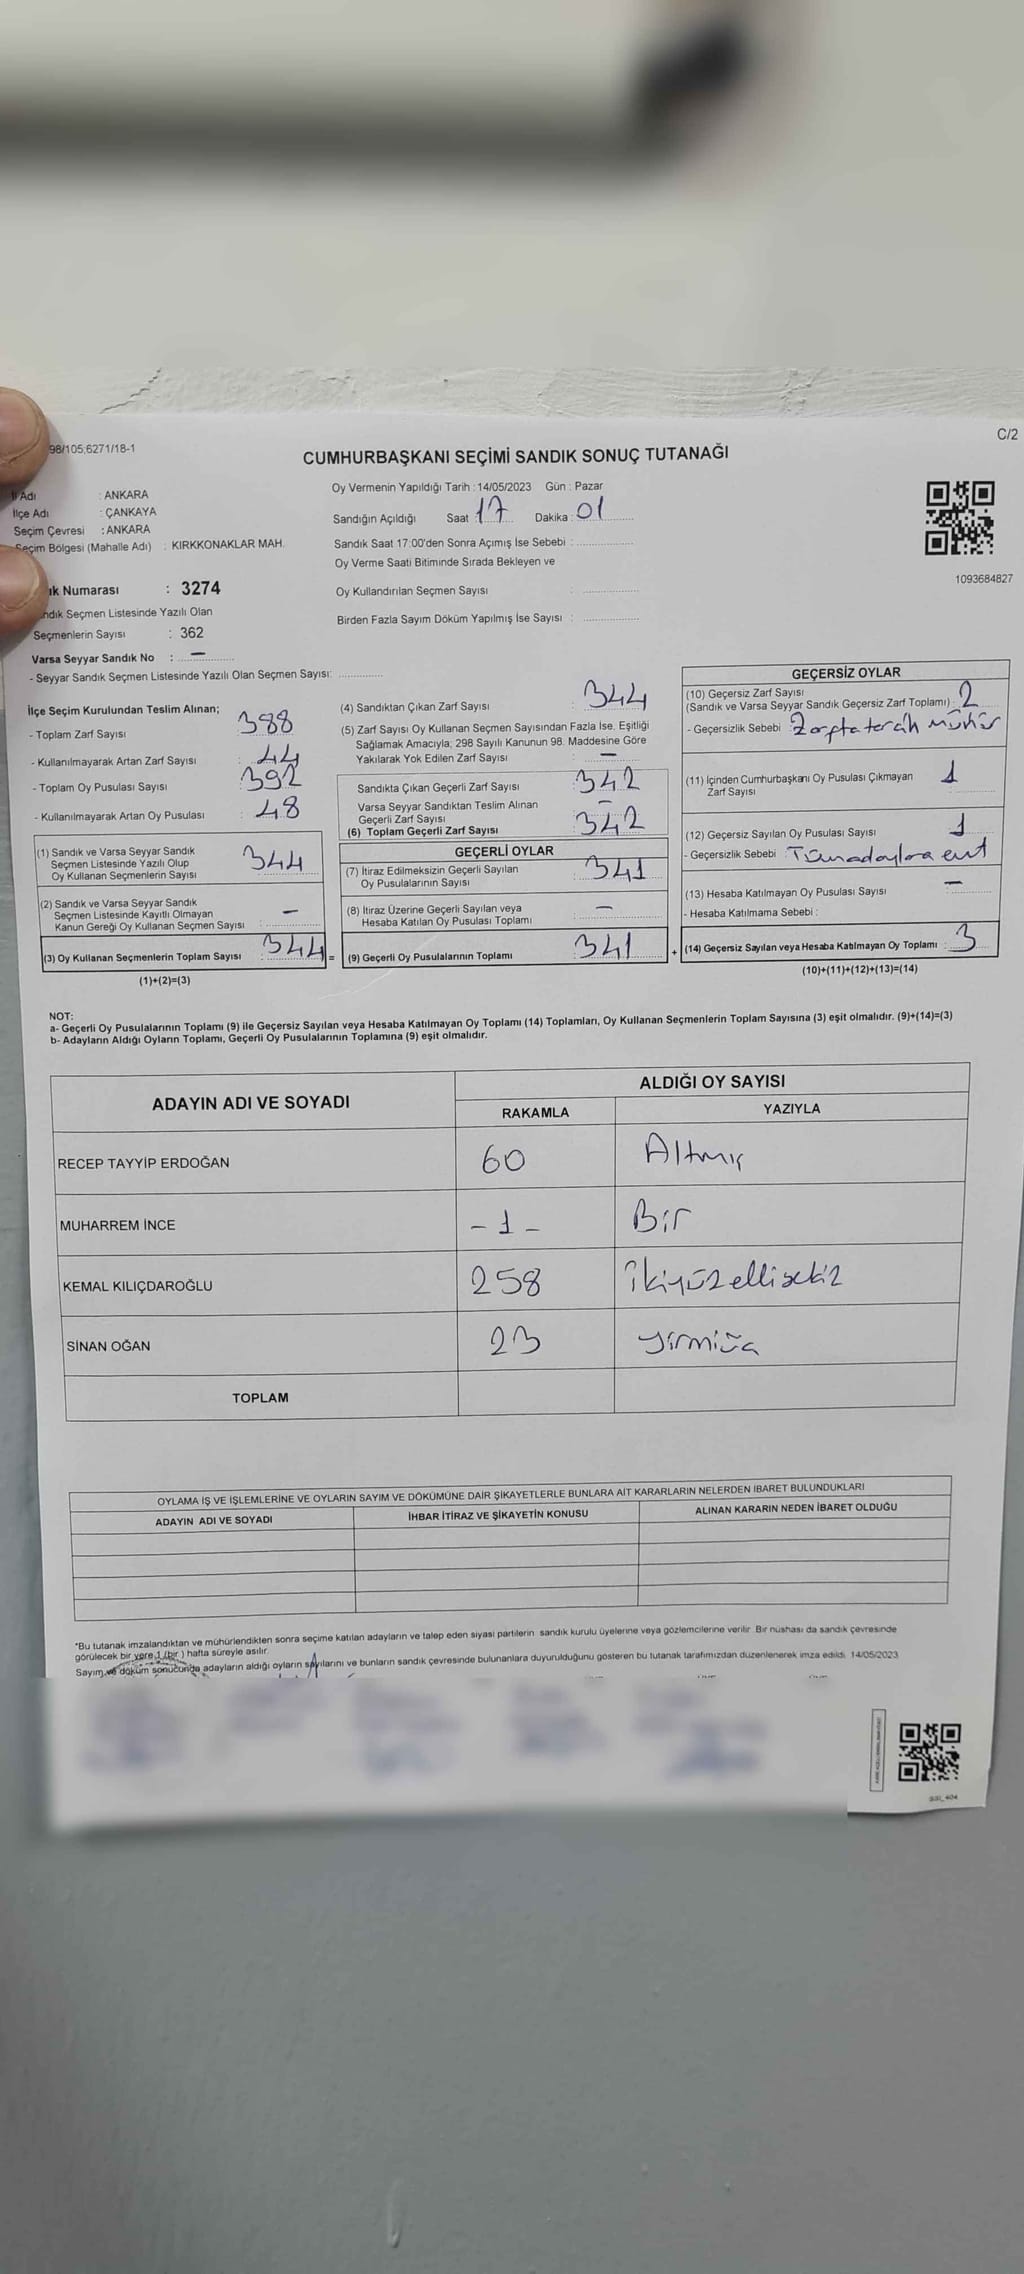 98/105;6271/18-1
C/2
CUMHURBAŞKANI SEÇİMİ SANDIK SONUÇ TUTANAĞI
İl Adı : ANKARA
İlçe Adı : ÇANKAYA
Seçim Çevresi : ANKARA
Seçim Bölgesi (Mahalle Adı) : KIRKKONAKLAR MAH.
Oy Vermenin Yapıldığı Tarih : 14/05/2023 Gün : Pazar
Sandığın Açıldığı Saat : 17 Dakika : 01
Sandık Saat 17:00'den Sonra Açımış İse Sebebi :
Oy Verme Saati Bitiminde Sırada Bekleyen ve
Oy Kullandırılan Seçmen Sayısı :
Birden Fazla Sayım Döküm Yapılmış İse Sayısı :
1093684827
ık Numarası : 3274
ndık Seçmen Listesinde Yazılı Olan
Seçmenlerin Sayısı : 362
Varsa Seyyar Sandık No : –
- Seyyar Sandık Seçmen Listesinde Yazılı Olan Seçmen Sayısı:
İlçe Seçim Kurulundan Teslim Alınan;
- Toplam Zarf Sayısı : 388
- Kullanılmayarak Artan Zarf Sayısı : 44
- Toplam Oy Pusulası Sayısı : 392
- Kullanılmayarak Artan Oy Pusulası : 48
(1) Sandık ve Varsa Seyyar Sandık
Seçmen Listesinde Yazılı Olup
Oy Kullanan Seçmenlerin Sayısı : 344
(2) Sandık ve Varsa Seyyar Sandık
Seçmen Listesinde Kayıtlı Olmayan
Kanun Gereği Oy Kullanan Seçmen Sayısı : –
(3) Oy Kullanan Seçmenlerin Toplam Sayısı : 344 =
(1)+(2)=(3)
(4) Sandıktan Çıkan Zarf Sayısı : 344
(5) Zarf Sayısı Oy Kullanan Seçmen Sayısından Fazla İse, Eşitliği
Sağlamak Amacıyla; 298 Sayılı Kanunun 98. Maddesine Göre
Yakılarak Yok Edilen Zarf Sayısı : –
Sandıkta Çıkan Geçerli Zarf Sayısı : 342
Varsa Seyyar Sandıktan Teslim Alınan
Geçerli Zarf Sayısı : –
(6) Toplam Geçerli Zarf Sayısı : 342
GEÇERLİ OYLAR
(7) İtiraz Edilmeksizin Geçerli Sayılan
Oy Pusulalarının Sayısı : 341
(8) İtiraz Üzerine Geçerli Sayılan veya
Hesaba Katılan Oy Pusulası Toplamı : –
(9) Geçerli Oy Pusulalarının Toplamı : 341 +
GEÇERSİZ OYLAR
(10) Geçersiz Zarf Sayısı
(Sandık ve Varsa Seyyar Sandık Geçersiz Zarf Toplamı) : 2
- Geçersizlik Sebebi : Zarfta tercih mühür
(11) İçinden Cumhurbaşkanı Oy Pusulası Çıkmayan
Zarf Sayısı : 1
(12) Geçersiz Sayılan Oy Pusulası Sayısı : 1
- Geçersizlik Sebebi : Tüm adaylara evet
(13) Hesaba Katılmayan Oy Pusulası Sayısı : –
- Hesaba Katılmama Sebebi :
(14) Geçersiz Sayılan veya Hesaba Katılmayan Oy Toplamı : 3
(10)+(11)+(12)+(13)=(14)
NOT:
a- Geçerli Oy Pusulalarının Toplamı (9) ile Geçersiz Sayılan veya Hesaba Katılmayan Oy Toplamı (14) Toplamları, Oy Kullanan Seçmenlerin Toplam Sayısına (3) eşit olmalıdır. (9)+(14)=(3)
b- Adayların Aldığı Oyların Toplamı, Geçerli Oy Pusulalarının Toplamına (9) eşit olmalıdır.
ADAYIN ADI VE SOYADI
ALDIĞI OY SAYISI
RAKAMLA YAZIYLA
RECEP TAYYİP ERDOĞAN 60 Altmış
MUHARREM İNCE -1- Bir
KEMAL KILIÇDAROĞLU 258 ikiyüzellisekiz
SİNAN OĞAN 23 yirmiüç
TOPLAM
OYLAMA İŞ VE İŞLEMLERİNE VE OYLARIN SAYIM VE DÖKÜMÜNE DAİR ŞİKAYETLERLE BUNLARA AİT KARARLARIN NELERDEN İBARET BULUNDUKLARI
ADAYIN ADI VE SOYADI İHBAR İTİRAZ VE ŞİKAYETİN KONUSU ALINAN KARARIN NEDEN İBARET OLDUĞU
*Bu tutanak imzalandıktan ve mühürlendikten sonra seçime katılan adayların ve talep eden siyasi partilerin sandık kurulu üyelerine veya gözlemcilerine verilir. Bir nüshası da sandık çevresinde
görülecek bir yere 1 (bir ) hafta süreyle asılır.
Sayım ve döküm sonucunda adayların aldığı oyların sayılarını ve bunların sandık çevresinde bulunanlara duyurulduğunu gösteren bu tutanak tarafımızdan düzenlenerek imza edildi. 14/05/2023